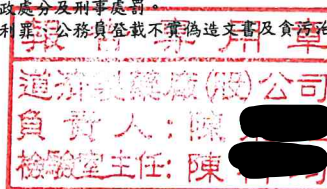 政處分及刑事處罰。
利罪、公務員登載不實偽造文書及貪污治
報告專用章
道濟製藥廠(股)公司
負責人:陳
檢驗室主任:陳